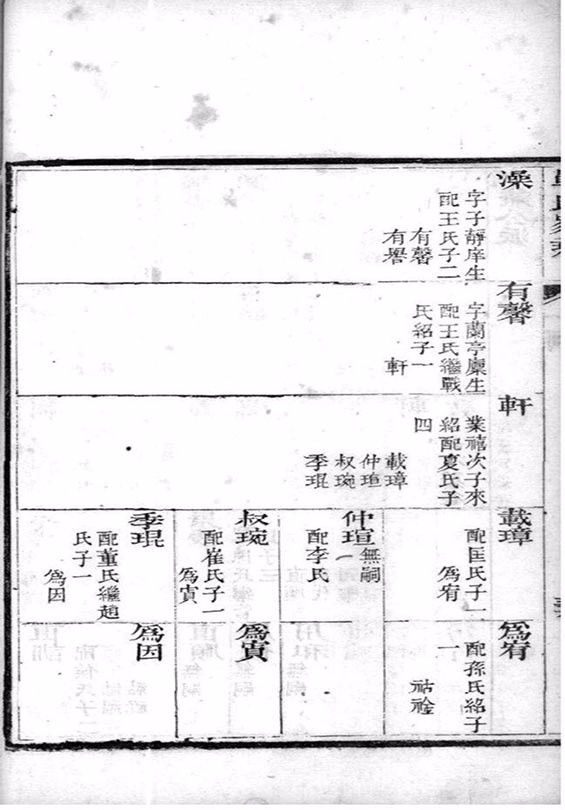 澡
字子靜庠生
配王氏子二
有馨
有譽
有馨
字蘭亭廩生
配王氏繼戰
氏紹子一
軒
軒
業禧次子來
紹配夏氏子
四
載璋
仲瑄
叔琬
季琨
載璋
配匡氏子一
為宥
仲瑄
無嗣
配李氏
叔琬
配崔氏子一
為寅
季琨
配董氏繼趙
氏子一
為因
為宥
配孫氏紹子
一
祜
為寅
為因